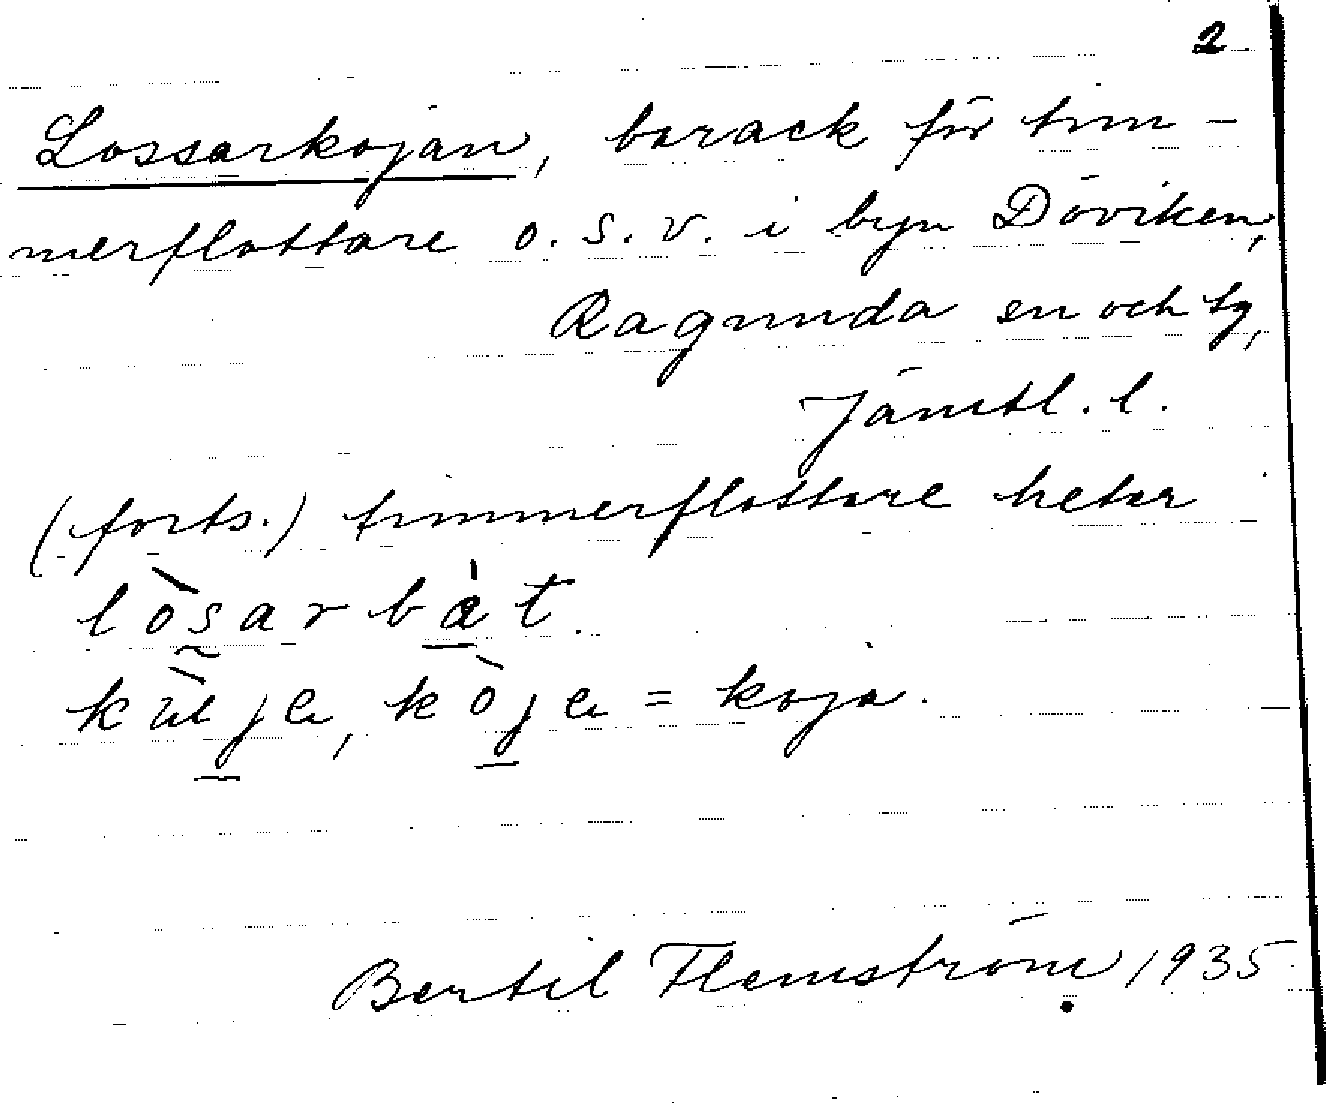 2
Lossarkojan, barack för tim-
merflottare o.s.v. i byn Döviken,
Ragunda sn och tg,
Jämtl. l.
(forts.) timmerflottare heter
lòsarbàt.
kùljα, kòjα = koja.
Bertil Flemström 1935.